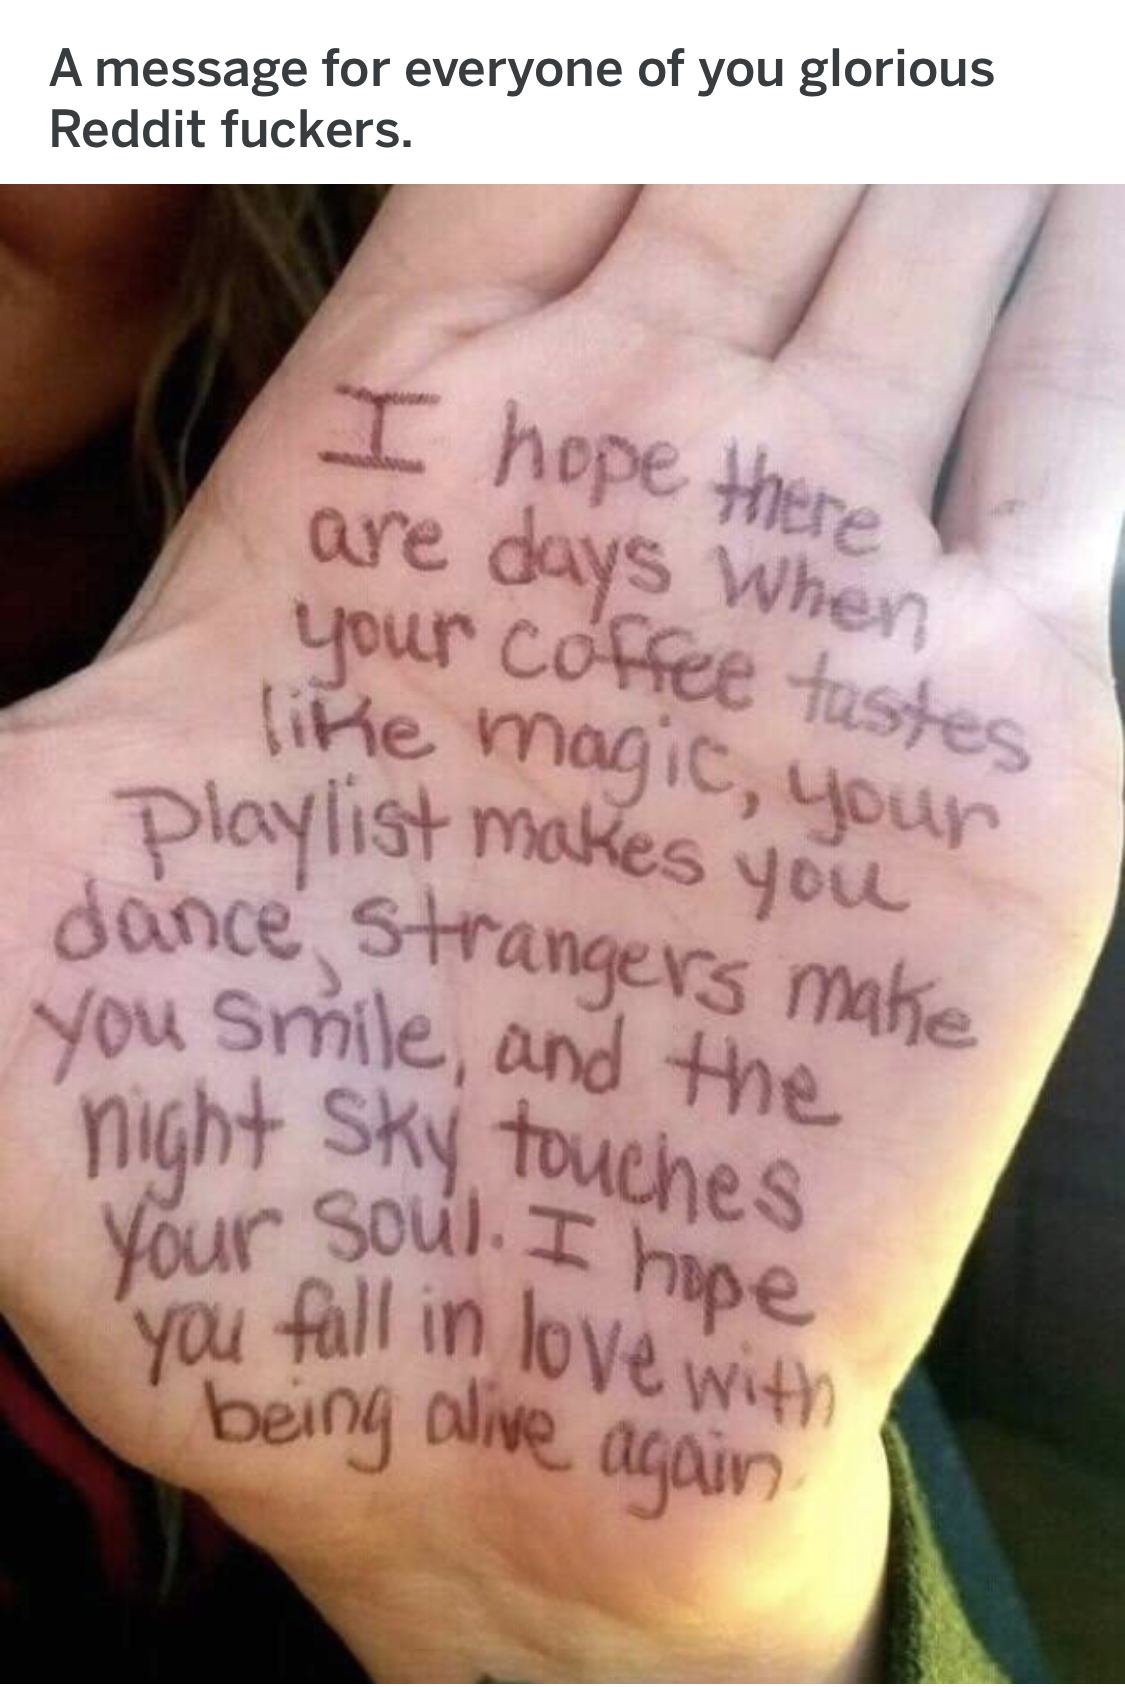 A message for everyone of you glorious
Reddit fuckers.
I hope there
are days when
your coffee tastes
like magic, your
playlist makes you
dance, strangers make
you smile, and the
night sky touches
your soul. I hope
you fall in love with
being alive again.